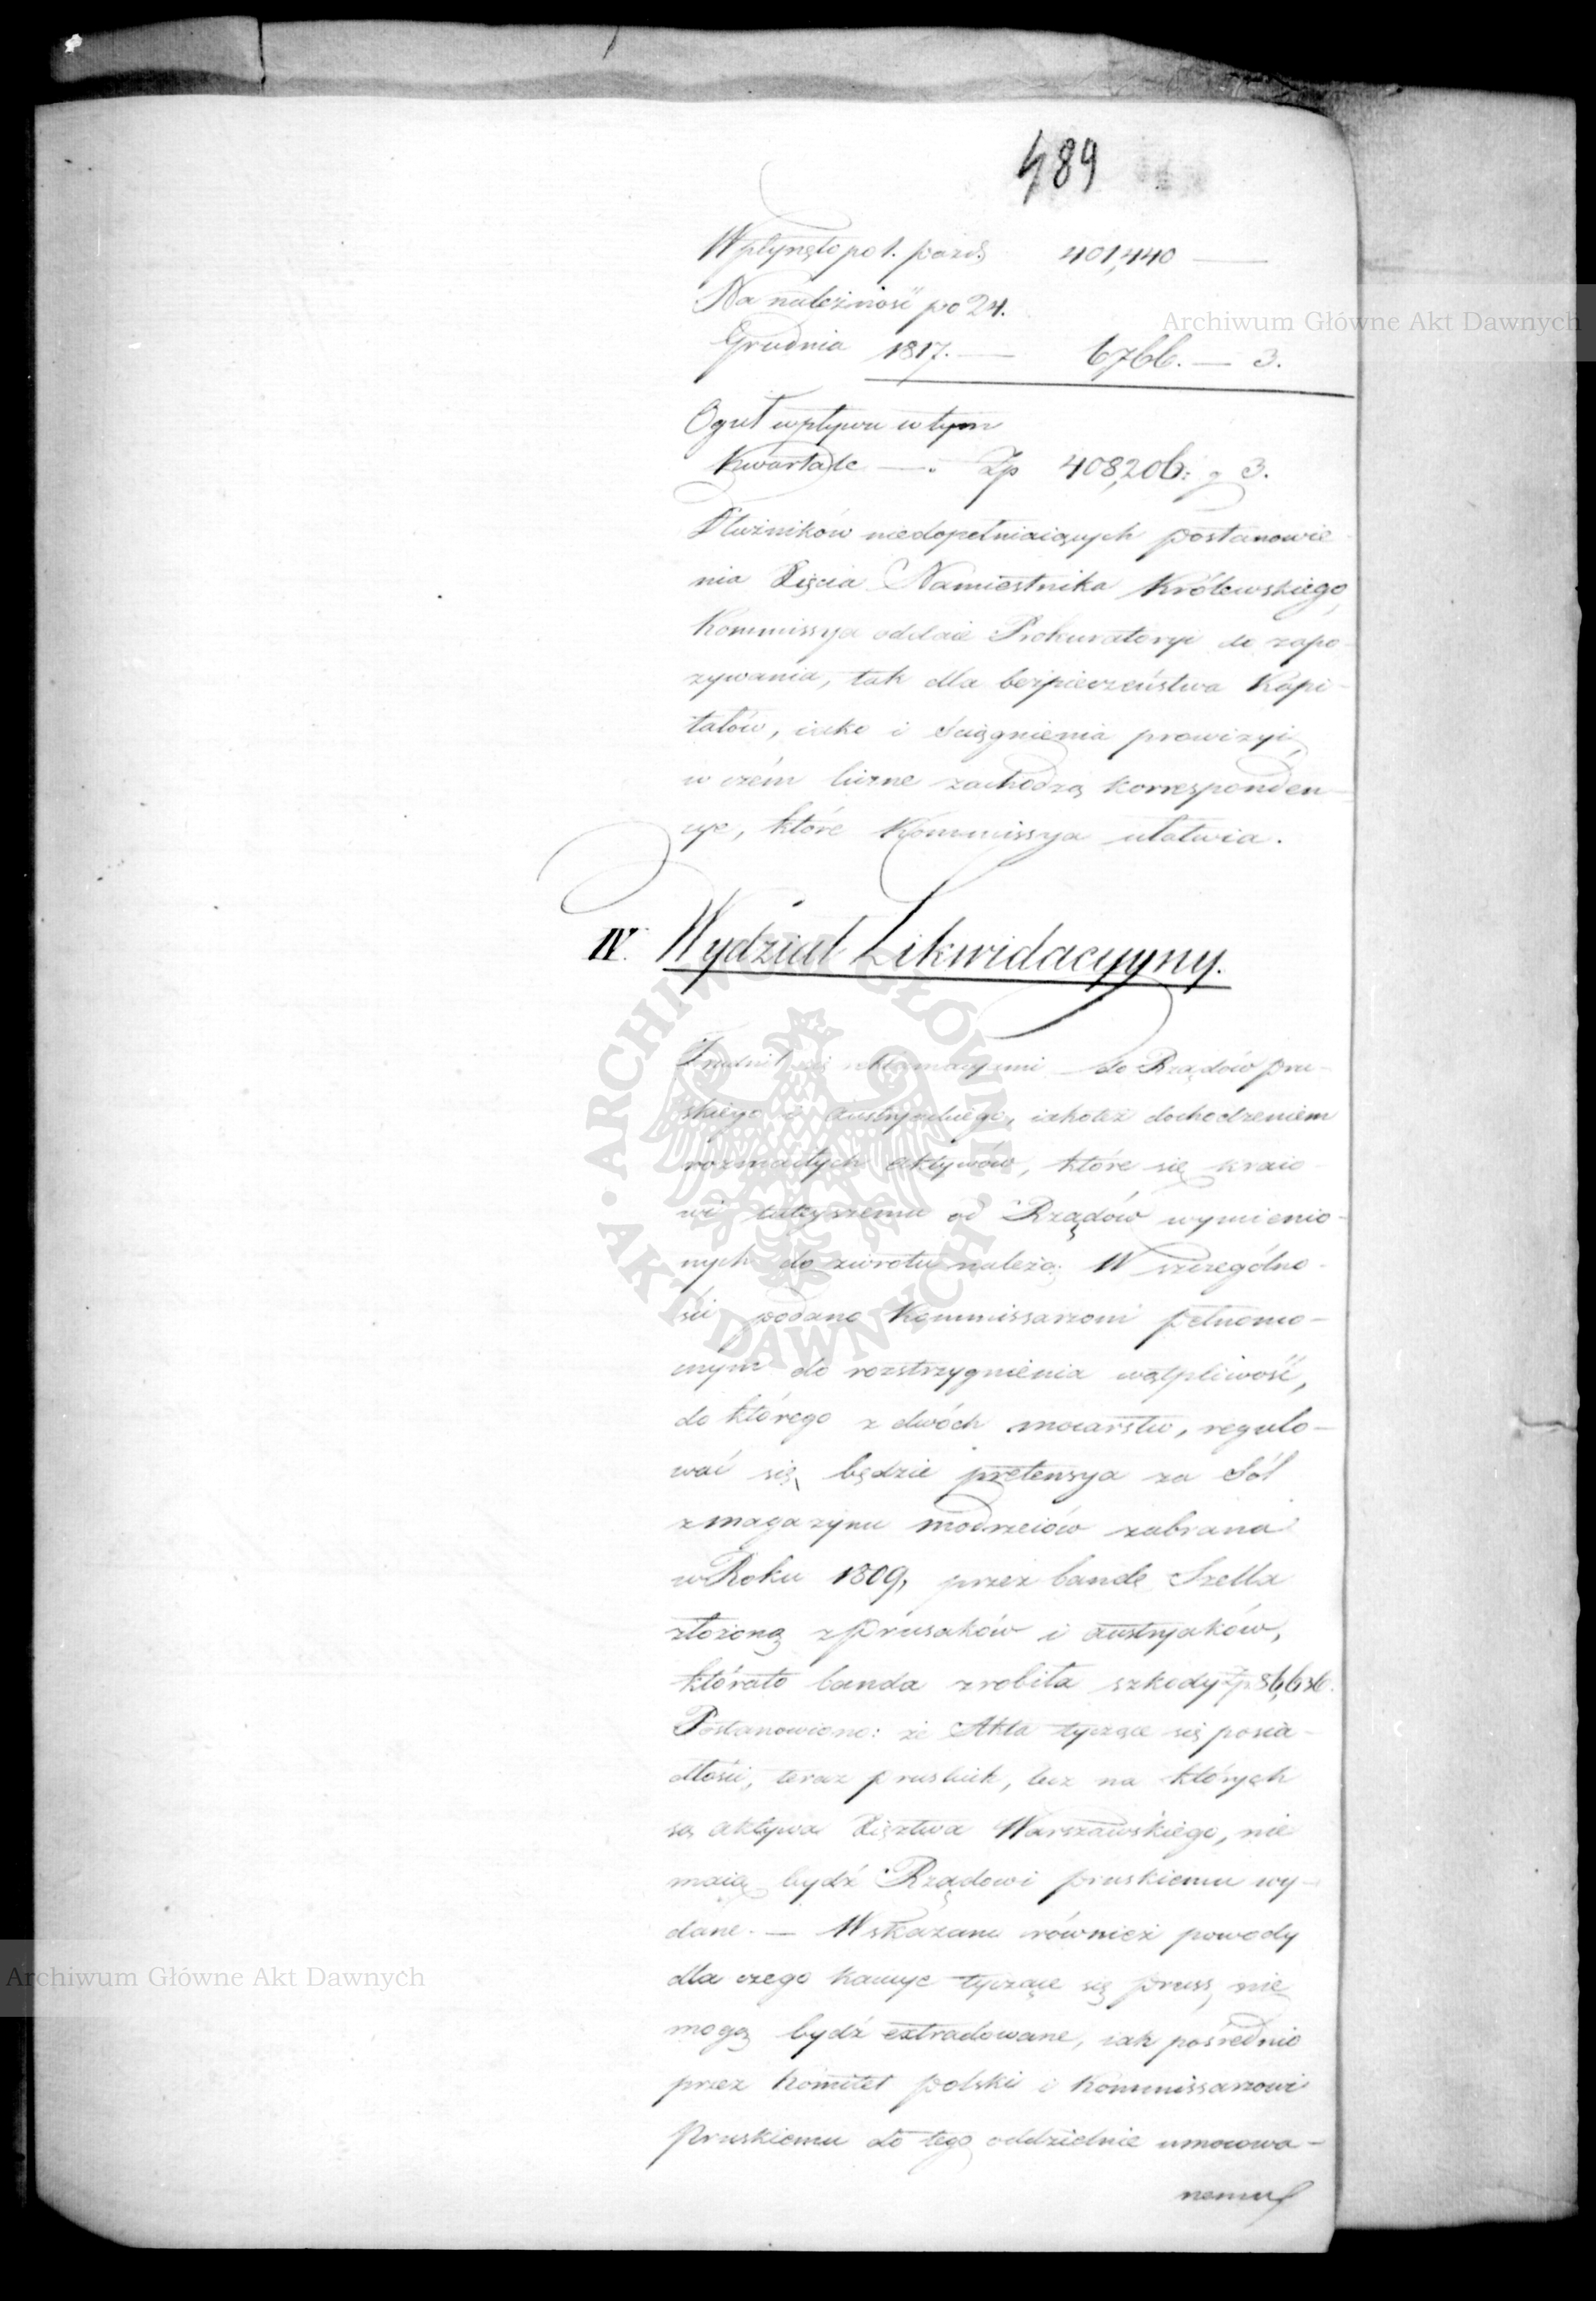 489
Wpłynęło po 1. paźd. 401,440 —
Na należność po 24.
Grudnia 1817. — 6766. — 3.
Oguł wpływu w tym
kwartale — . Zp 408,206: g 3.
Dłużników niedopełniaiących postanowie-
nia Xięcia Namiestnika Królewskiego,
Kommissya oddaie Prokuratoryi do zapo-
zywania, tak dla bezpieczeństwa Kapi-
tałów, iako i sciągnienia prowizyi,
w czém liczne zachodzą korresponden-
cye, które Kommissya ułatwia.
IV. Wydział Likwidacyyny.
Trudnił się reklamacyami do Rządów pru-
skiego i austryackiego, iakoteż dochodzeniem
rozmaitych aktywów, które się kraio-
wi tutéyszemu od Rządów wymienio-
nych do zwrotu należą. W szczególno-
ści podano Kommissarzom pełnomo-
cnym do rozstrzygnienia wątpliwość,
do którego z dwóch mocarstw, regulo-
wać się będzie pretensya za Sól
z magazynu modrzeiów zabraną
w Roku 1809, przez bandę Szella
złożoną z prusaków i austryaków,
któráto banda zrobiła szkody Zp
Postanowiono: że Akta tyczące się posia-
dłości, teraz pruskich, lecz na których
są aktywa Xięztwa Warszawskiego, nie
maią bydź Rządowi pruskiemu wy-
dane. — Wskazano również powody
dla czego kaucye tyczące się pruss, nie
mogą bydź extradowane, iak pośrednio
przez komitet polski i kommissarzowi
Pruskiemu do tego oddzielnie umocowa-
nemu
Archiwum Główne Akt Dawnych
ARCHIWUM GŁÓWNE AKT DAWNYCH
Archiwum Główne Akt Dawnych